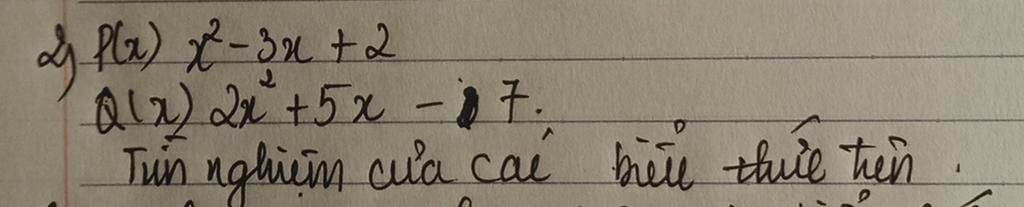 2) P(x) x² - 3x + 2
Q(x) 2x² + 5x - 7.
Tìm nghiệm của các biểu thức trên.